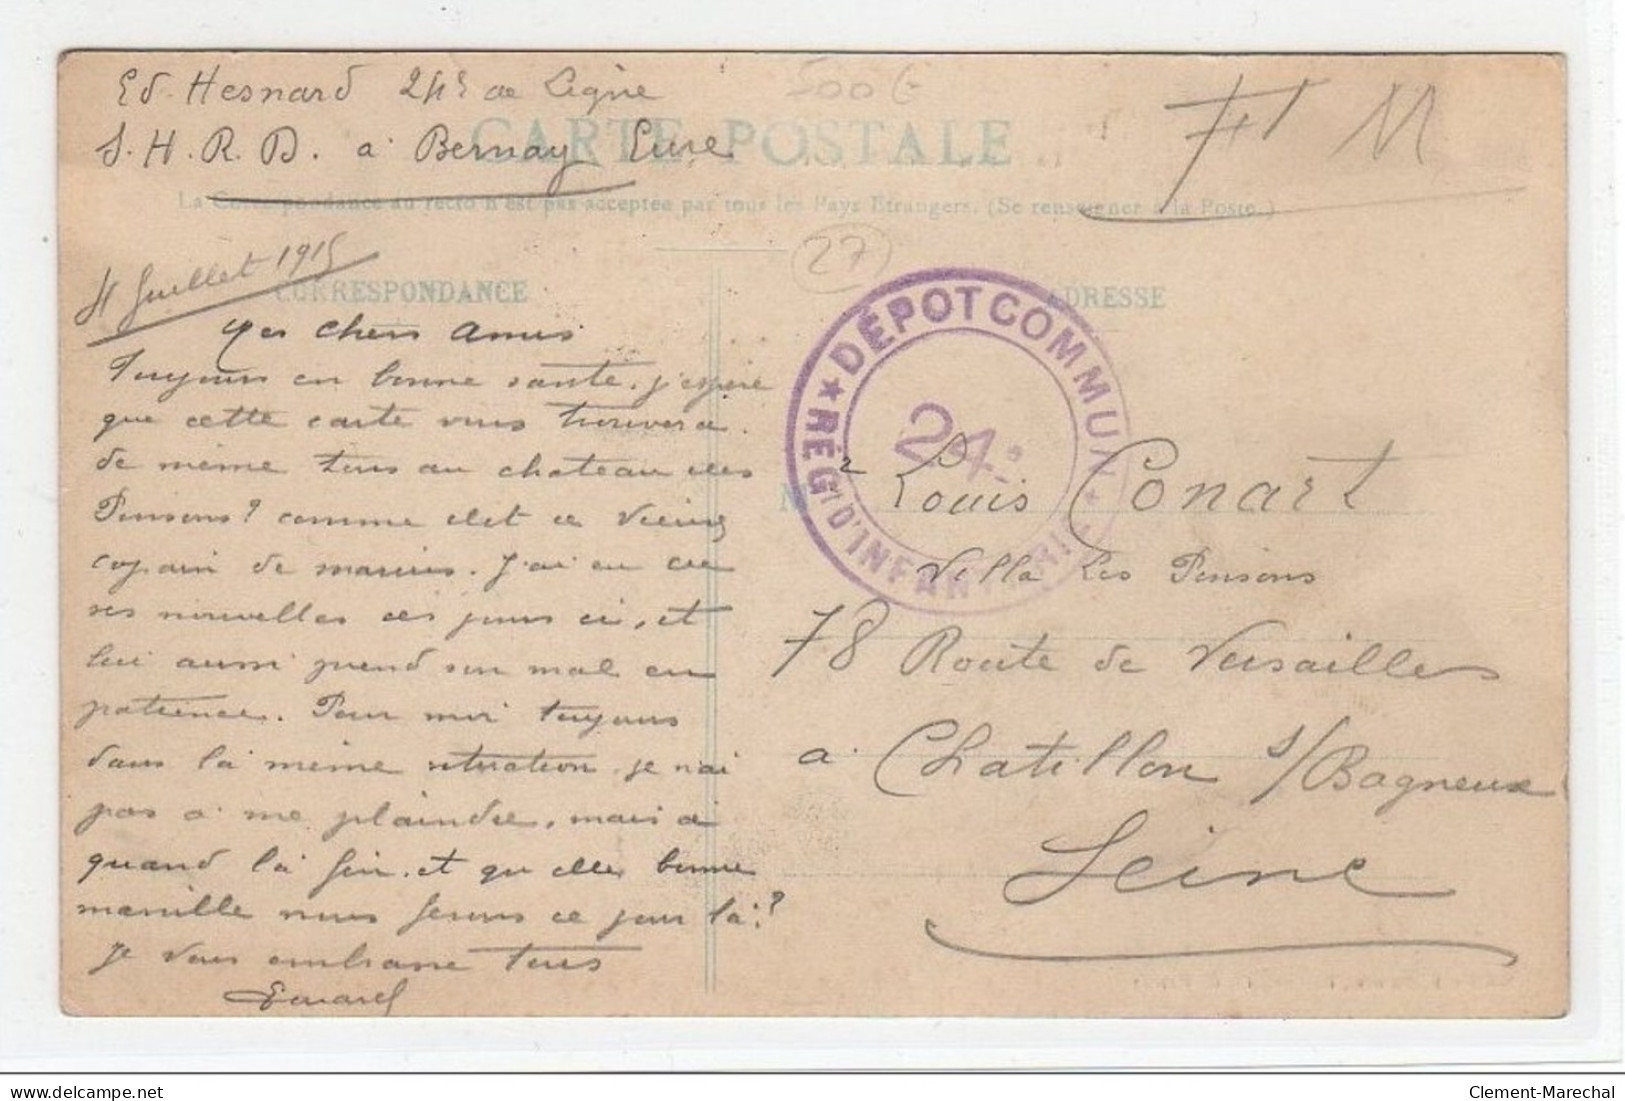 Ed. Hesnard 24e de Ligne
S. H. R. D. a Bernay Eure
500 G
F M
CARTE POSTALE
La Correspondance au recto n'est pas acceptée par tous les Pays Etrangers. (Se renseigner à la Poste.)
27
Juillet 1915
CORRESPONDANCE
ADRESSE
Mes chers Amis
Toujours en bonne santé, j'espère
que cette carte vous trouvera
de même tous au chateau des
Pinsons? comme dit ce vieux
copain de marius. J'ai eu
ses nouvelles ces jours ci, et
lui aussi prend son mal en
patience. Pour moi toujours
dans la même situation. je n'ai
pas a me plaindre, mais a
quand la fin. et quelle bonne
manille nous ferons ce jour la?
Je vous embrasse tous
Edouard
DÉPOT COMMUN
24e
RÉGT D'INFANTERIE
M
Louis Conart
Villa Les Pinsons
78 Route de Versailles
a Chatillon s/Bagneux
Seine
delcampe.net
Clement-Marechal